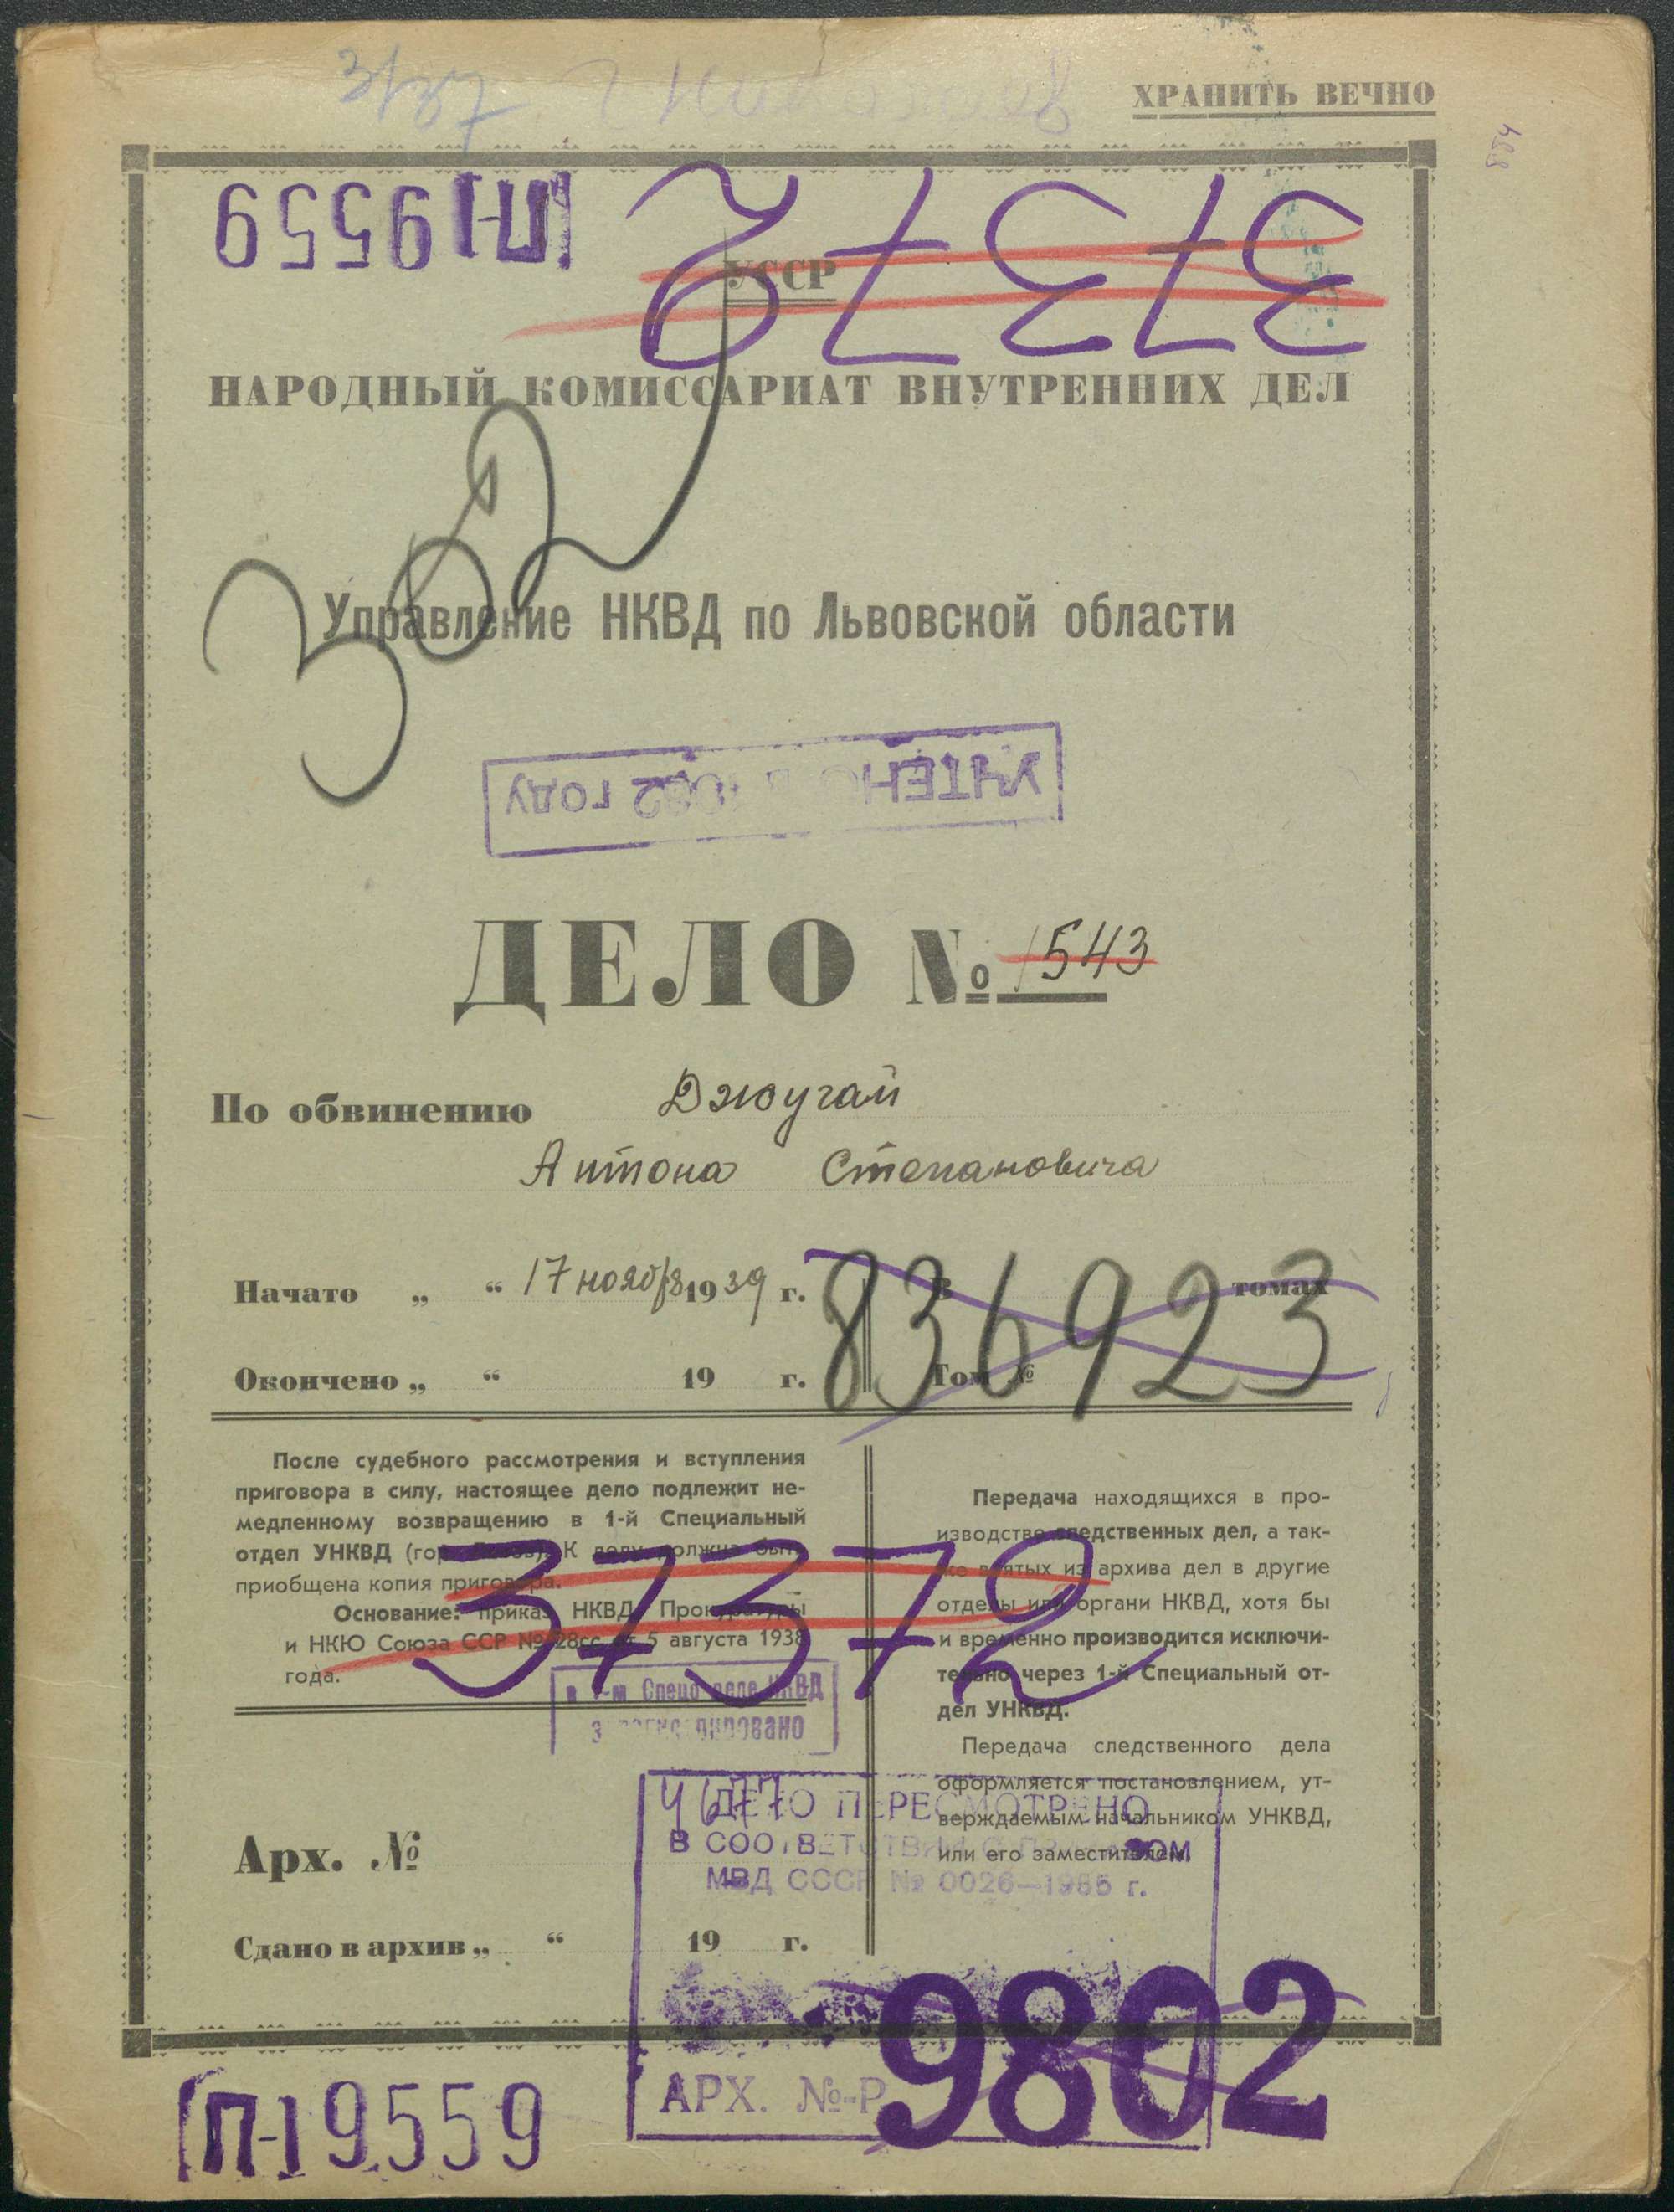 ХРАНИТЬ ВЕЧНО
884
П-19559
37372
УССР
НАРОДНЫЙ КОМИССАРИАТ ВНУТРЕННИХ ДЕЛ
382
Управление НКВД по Львовской области
УЧТЕНО В 1962 ГОДУ
ДЕЛО № 1543
По обвинению Джугай
Антона Степановича
Начато „ “ 17 ноября 1939 г.
В томах
836923
Окончено „ “ 19 г.
Том №
После судебного рассмотрения и вступления
приговора в силу, настоящее дело подлежит не-
медленному возвращению в 1-й Специальный
отдел УНКВД (гор. Львов). К делу должна быть
приобщена копия приговора.
Основание: приказ НКВД, Прокуратуры
и НКЮ Союза ССР № 28сс от 5 августа 1938
года.
Передача находящихся в про-
изводстве следственных дел, а так-
же взятых из архива дел в другие
отделы или органи НКВД, хотя бы
и временно производится исключи-
тельно через 1-й Специальный от-
дел УНКВД.
Передача следственного дела
оформляется постановлением, ут-
верждаемым начальником УНКВД,
или его заместителем.
37372
в 1-м Спецотделе НКВД
зарегистрировано
4677
ДЕЛО ПЕРЕСМОТРЕНО
В СООТВЕТСТВИИ С ПРИКАЗОМ
МВД СССР № 0026—1955 г.
Арх. №
Сдано в архив „ “ 19 г.
АРХ. №-Р 9802
П-19559